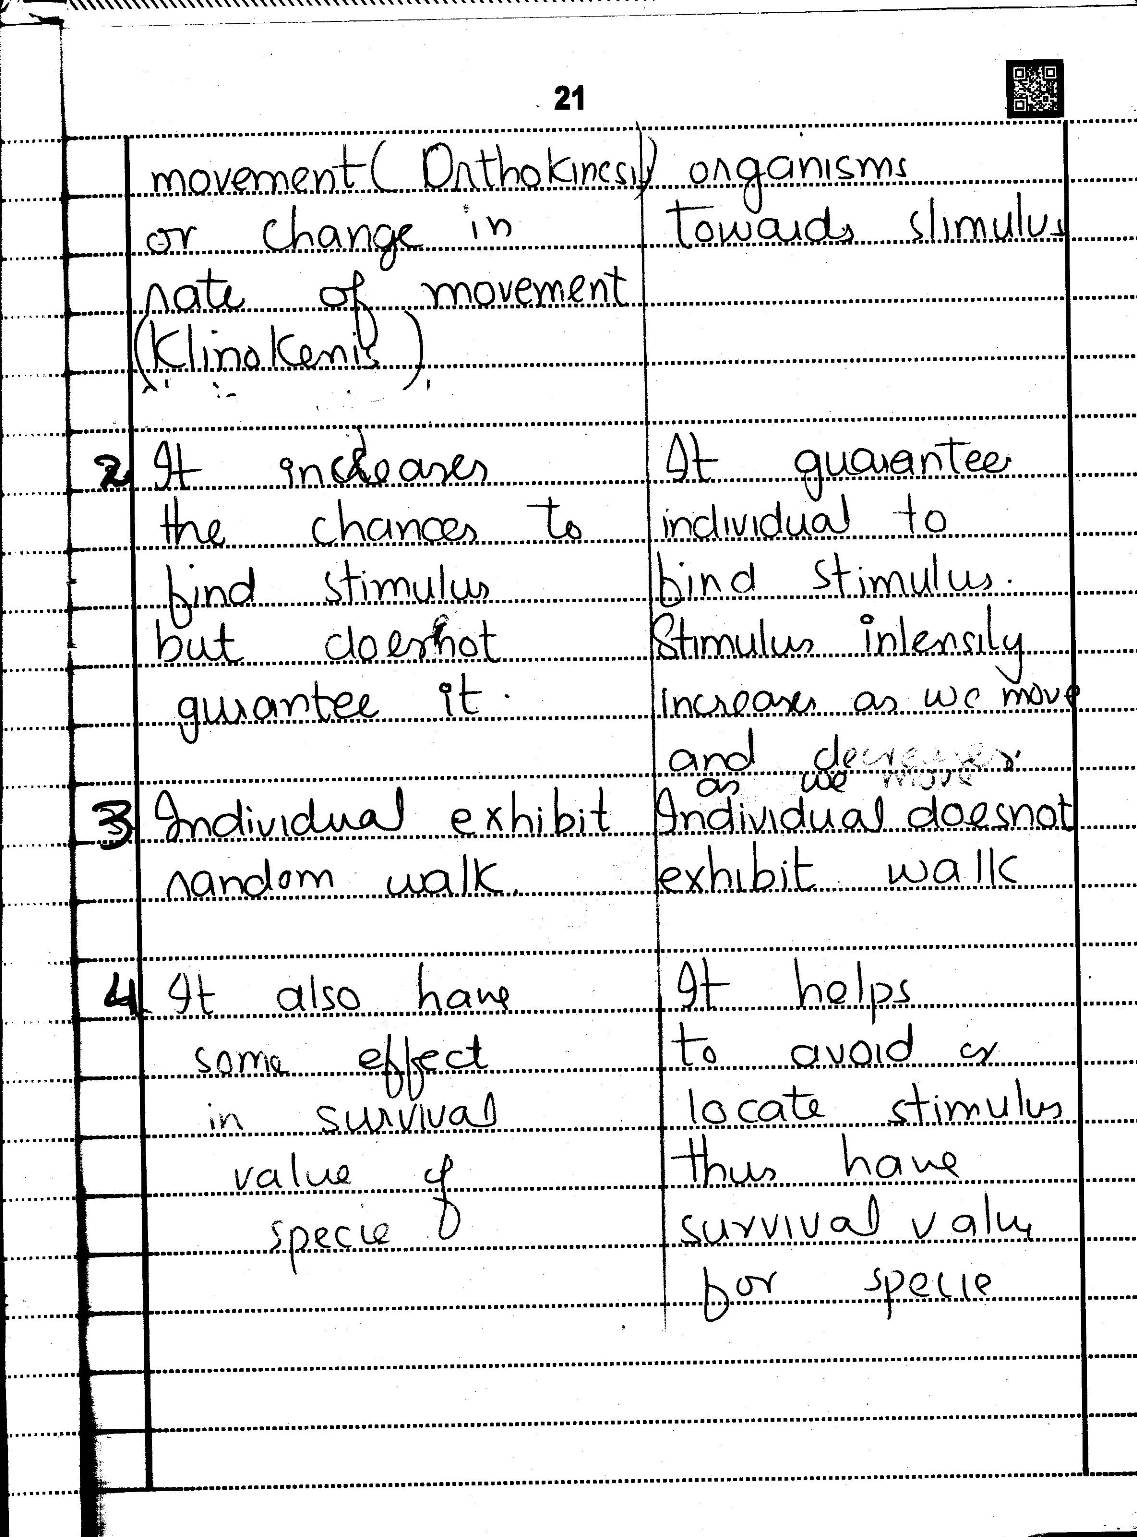 21
movement (Orthokinesis)
or change in
rate of movement
(Klinokenis).
organisms
towards stimulus
2. It increases
the chances to
find stimulus
but doesnot
gurantee it.
It guarantee
individual to
find stimulus.
Stimulus intensity
increases as we move
and decreases
as we move
3. Individual exhibit
random walk.
Individual doesnot
exhibit walk
4. It also have
some effect
in survival
value of
specie
It helps
to avoid or
locate stimulus
thus have
survival value
for specie